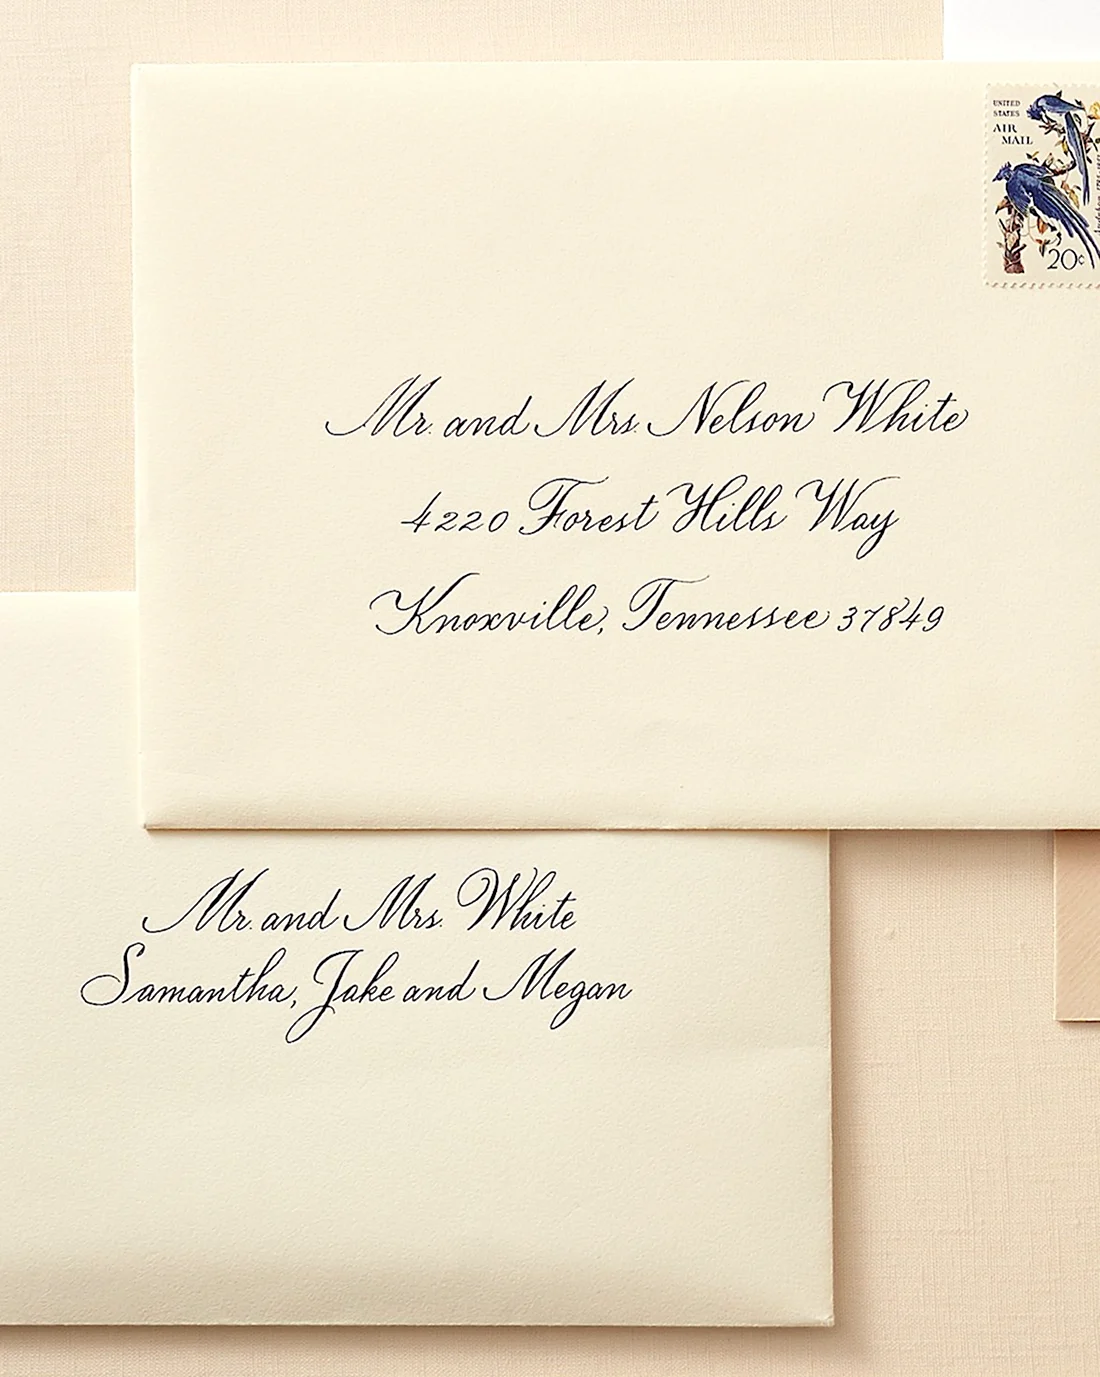 UNITED
STATES
AIR
MAIL
20c
Mr. and Mrs. Nelson White
4220 Forest Hills Way
Knoxville, Tennessee 37849
Mr. and Mrs. White
Samantha, Jake and Megan